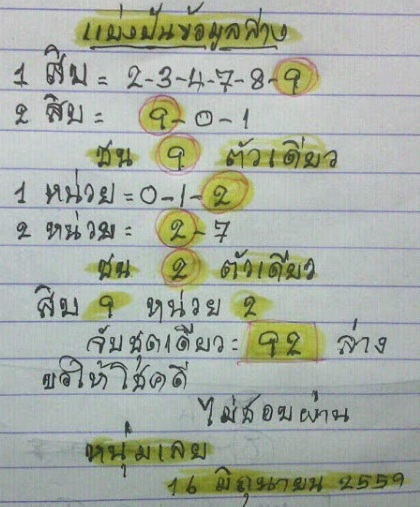 แบ่งปันข้อมูลล่าง
1 สิบ = 2-3-4-7-8-9
2 สิบ = 9-0-1
ชน 9 ตัวเดียว
1 หน่วย = 0-1-2
2 หน่วย = 2-7
ชน 2 ตัวเดียว
สิบ 9 หน่วย 2
จับชุดเดียว = 92 ล่าง
ขอให้โชคดี
ไม่ชอบผ่าน
หนุ่มเลย
16 มิถุนายน 2559